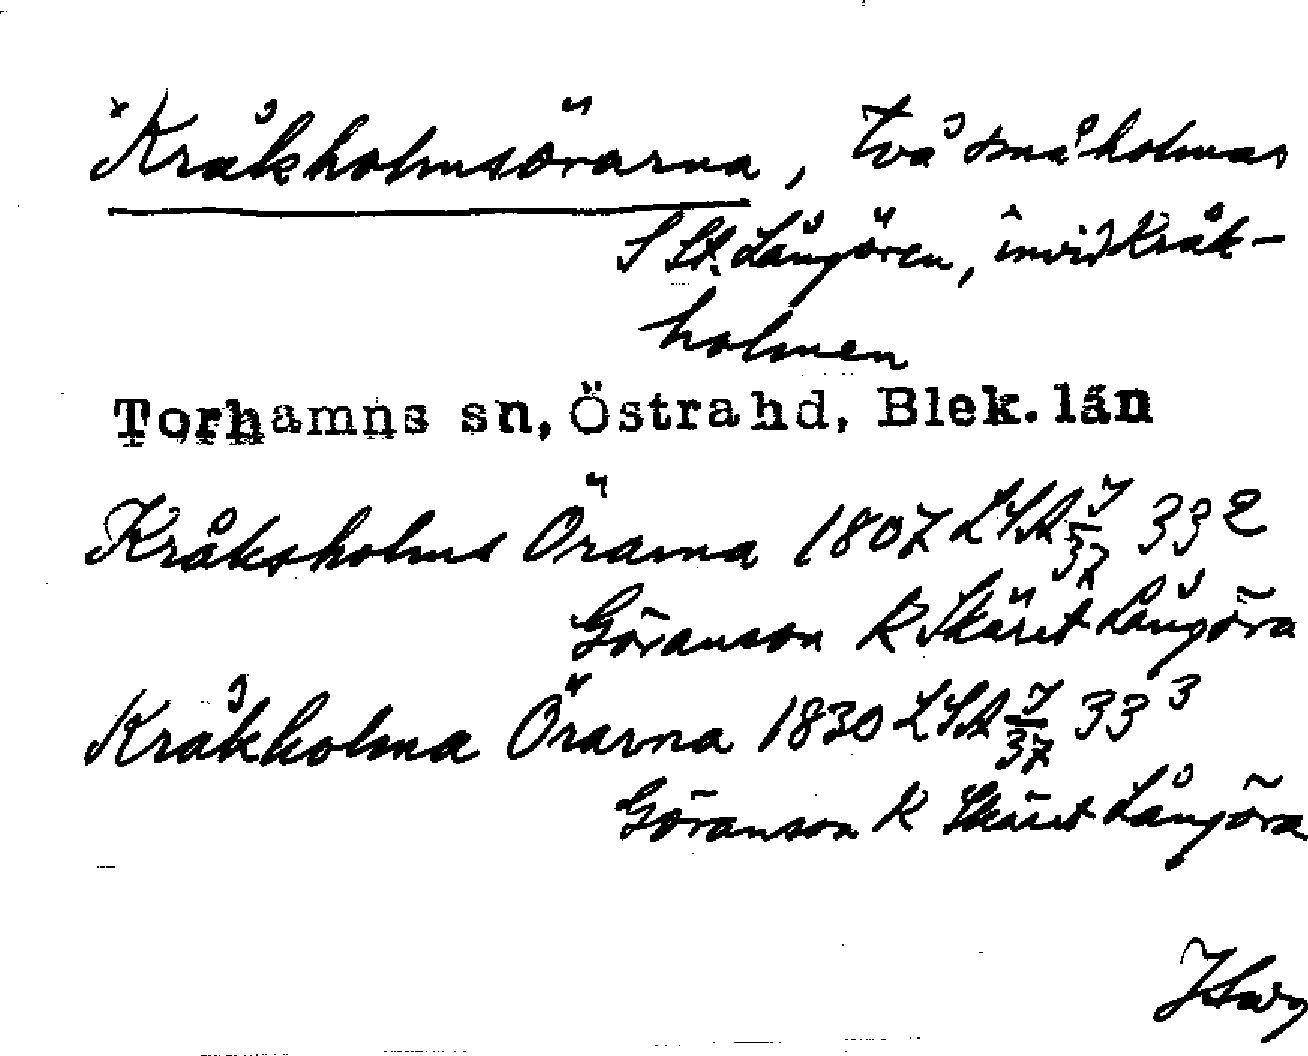 *Kråkholmsörarna, två små holmar
S St. Långören, invid Kråk-
holmen
Torhamns sn, Östra hd, Blek. län
Kråksholms Örarna 1807 LSA 7/37 33²
Göranson K Skäret Långöra
Kråkholma Örarna 1830 LSA 7/37 33³
Göranson K Skäret Långöra